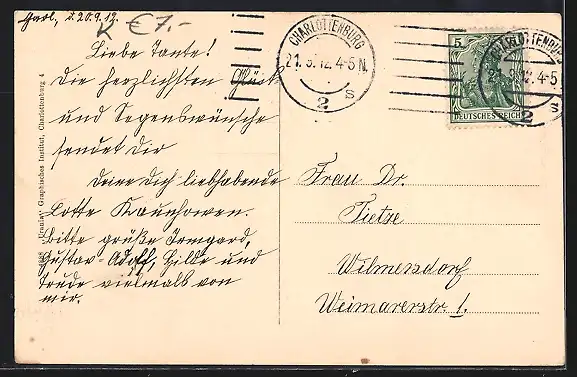 Charl., d. 20.9.12.
K €7.-
Liebe Tante!
Die herzlichsten Glück-
und Segenswünsche
sendet Dir
Deine Dich liebhabende
Lotte Kaunhowen.
Bitte grüße Irmgard,
Gustav-Adolf, Hilde und
Trude vielmals von
mir.
Graphisches Institut, Charlottenburg 4
CHARLOTTENBURG
21.9.12. 4-5 N.
2 s
5
DEUTSCHES REICH
CHARLOTTENBURG
21.9.12. 4-5 N.
2 s
Frau Dr.
Tietze
Wilmersdorf
Weimarerstr. 1.